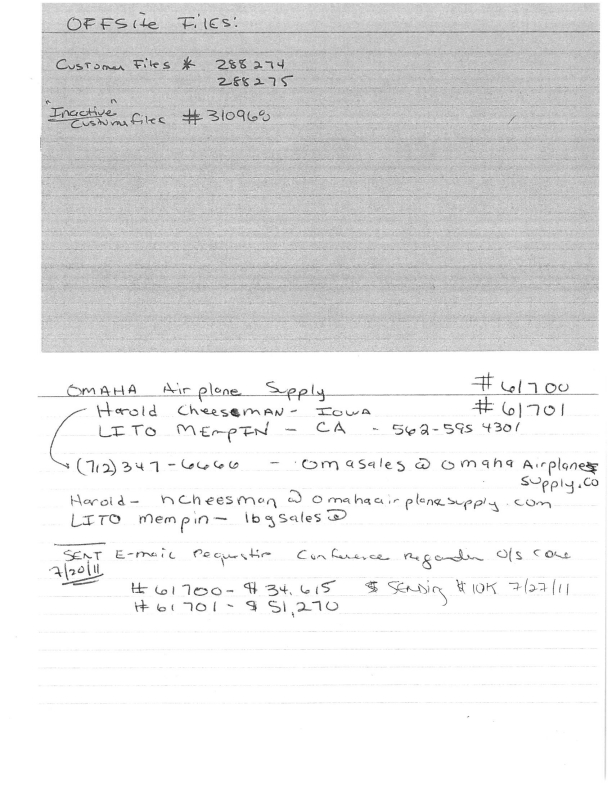 OFFSite Files:
Customer Files # 288274
288275
"Inactive"
Custome files #310968
OMAHA Airplane Supply #61700
Harold Cheeseman - IOWA #61701
LITO MEmpIN - CA - 562-595 4301
(712) 347-6666 - omasales @ omaha Airplanes
Supply.co
Harold - hcheesman @ omahaairplanesupply.com
LITO mempin - lbgsales@
SENT E-mail Requestin Conference Regarden O/S
7/20/11
#61700 - $34,615 $ SENDing $10K 7/27/11
#61701 - $51,270